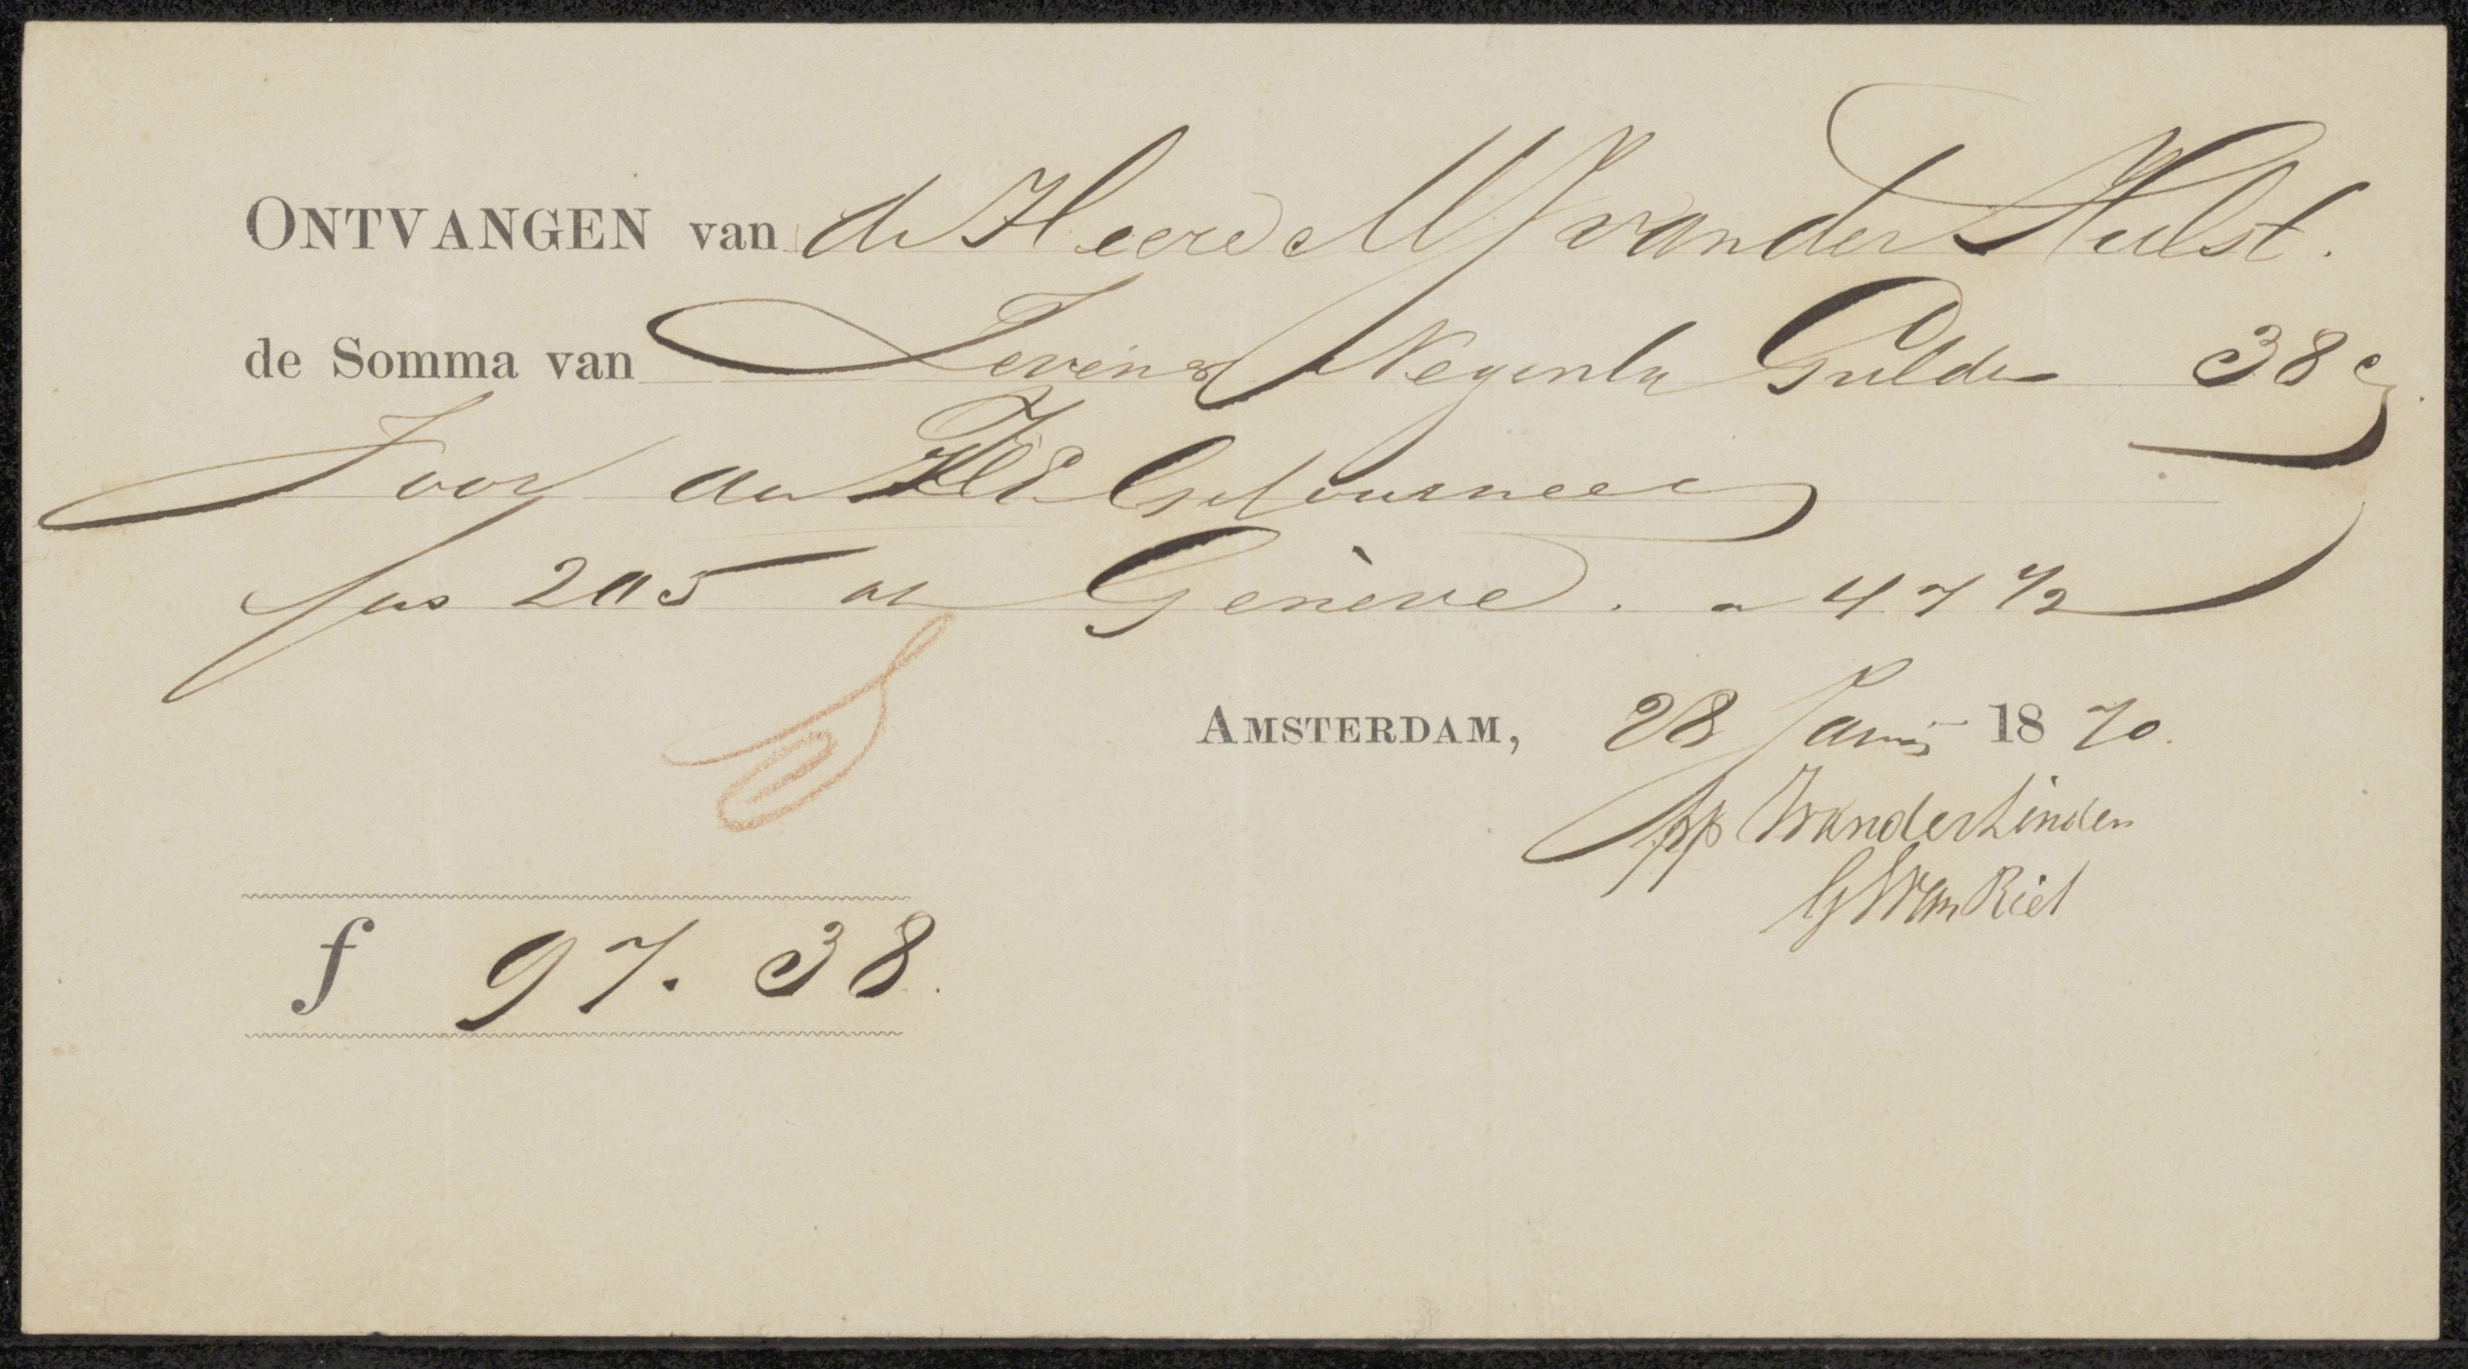 ONTVANGEN van de Heere M J van der Hulst.
de Somma van Zeven & Negentig Gulden 38 c
Voor aan ZEd Gefourneerd
fcs 205 op Genève. a 47 1/2
AMSTERDAM, 28 Januij 1870.
pp van der Linden
G W van Riet
f 97.38.